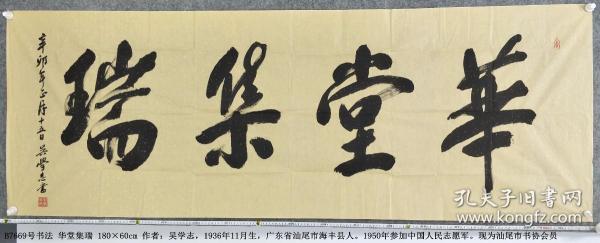 華堂集瑞
辛卯年正月十五日吴學志書
孔夫子旧书网
B7669号书法 华堂集瑞 180×60cm 作者：吴学志，1936年11月生，广东省汕尾市海丰县人。1950年参加中国人民志愿军。现为汕尾市书协会员